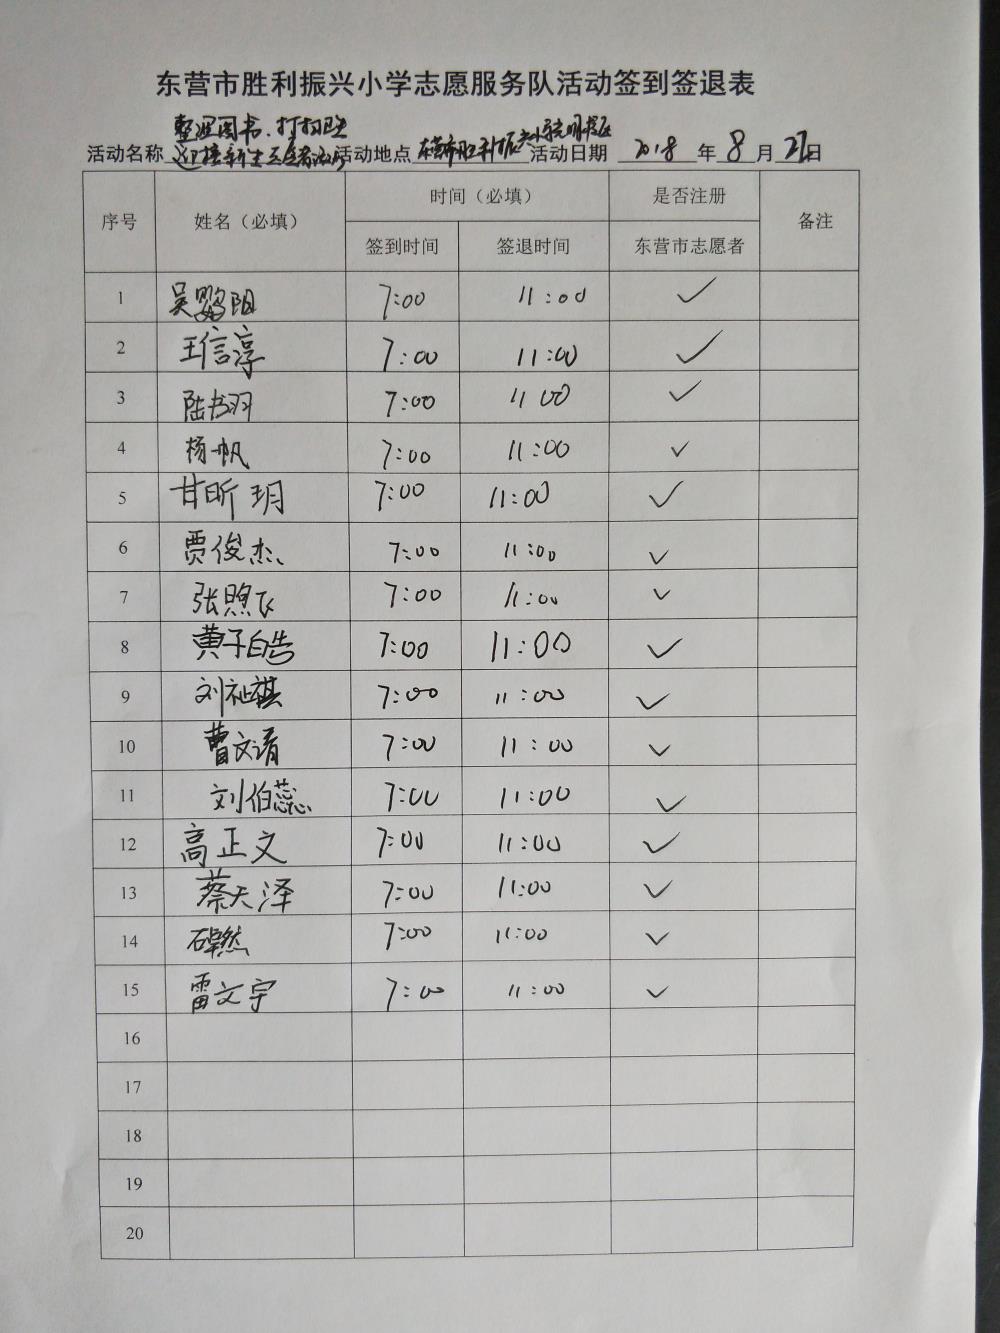 东营市胜利振兴小学志愿服务队活动签到签退表
整理图书、打扫卫生
活动名称 迎接新生志愿者活动 活动地点 东营市胜利振兴小学 活动日期 2018 年 8 月 日
序号 姓名（必填） 时间（必填） 是否注册 备注
签到时间 签退时间 东营市志愿者
1 吴 阳 7:00 11:00 ✓
2 王信淳 7:00 11:00 ✓
3 陆书羽 7:00 11 00 ✓
4 杨一帆 7:00 11:00 ✓
5 甘昕玥 7:00 11:00 ✓
6 贾俊杰 7:00 11:00 ✓
7 张煦飞 7:00 11:00 ✓
8 黄子皓 7:00 11:00 ✓
9 刘祉祺 7:00 11:00 ✓
10 曹文清 7:00 11:00 ✓
11 刘伯蕊 7:00 11:00 ✓
12 高正文 7:00 11:00 ✓
13 蔡天泽 7:00 11:00 ✓
14 7:00 11:00 ✓
15 雷文宇 7:00 11:00 ✓
16
17
18
19
20